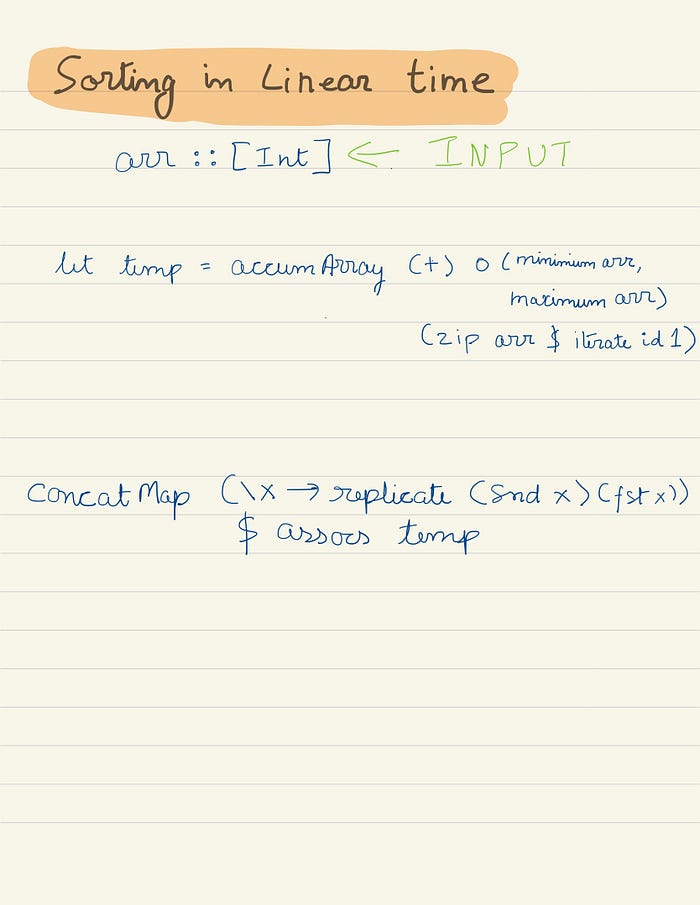 Sorting in Linear time
arr :: [Int] ← INPUT
let temp = accumArray (+) 0 (minimum arr,
maximum arr)
(zip arr $ iterate id 1)
concatMap (\x → replicate (snd x) (fst x))
$ assocs temp